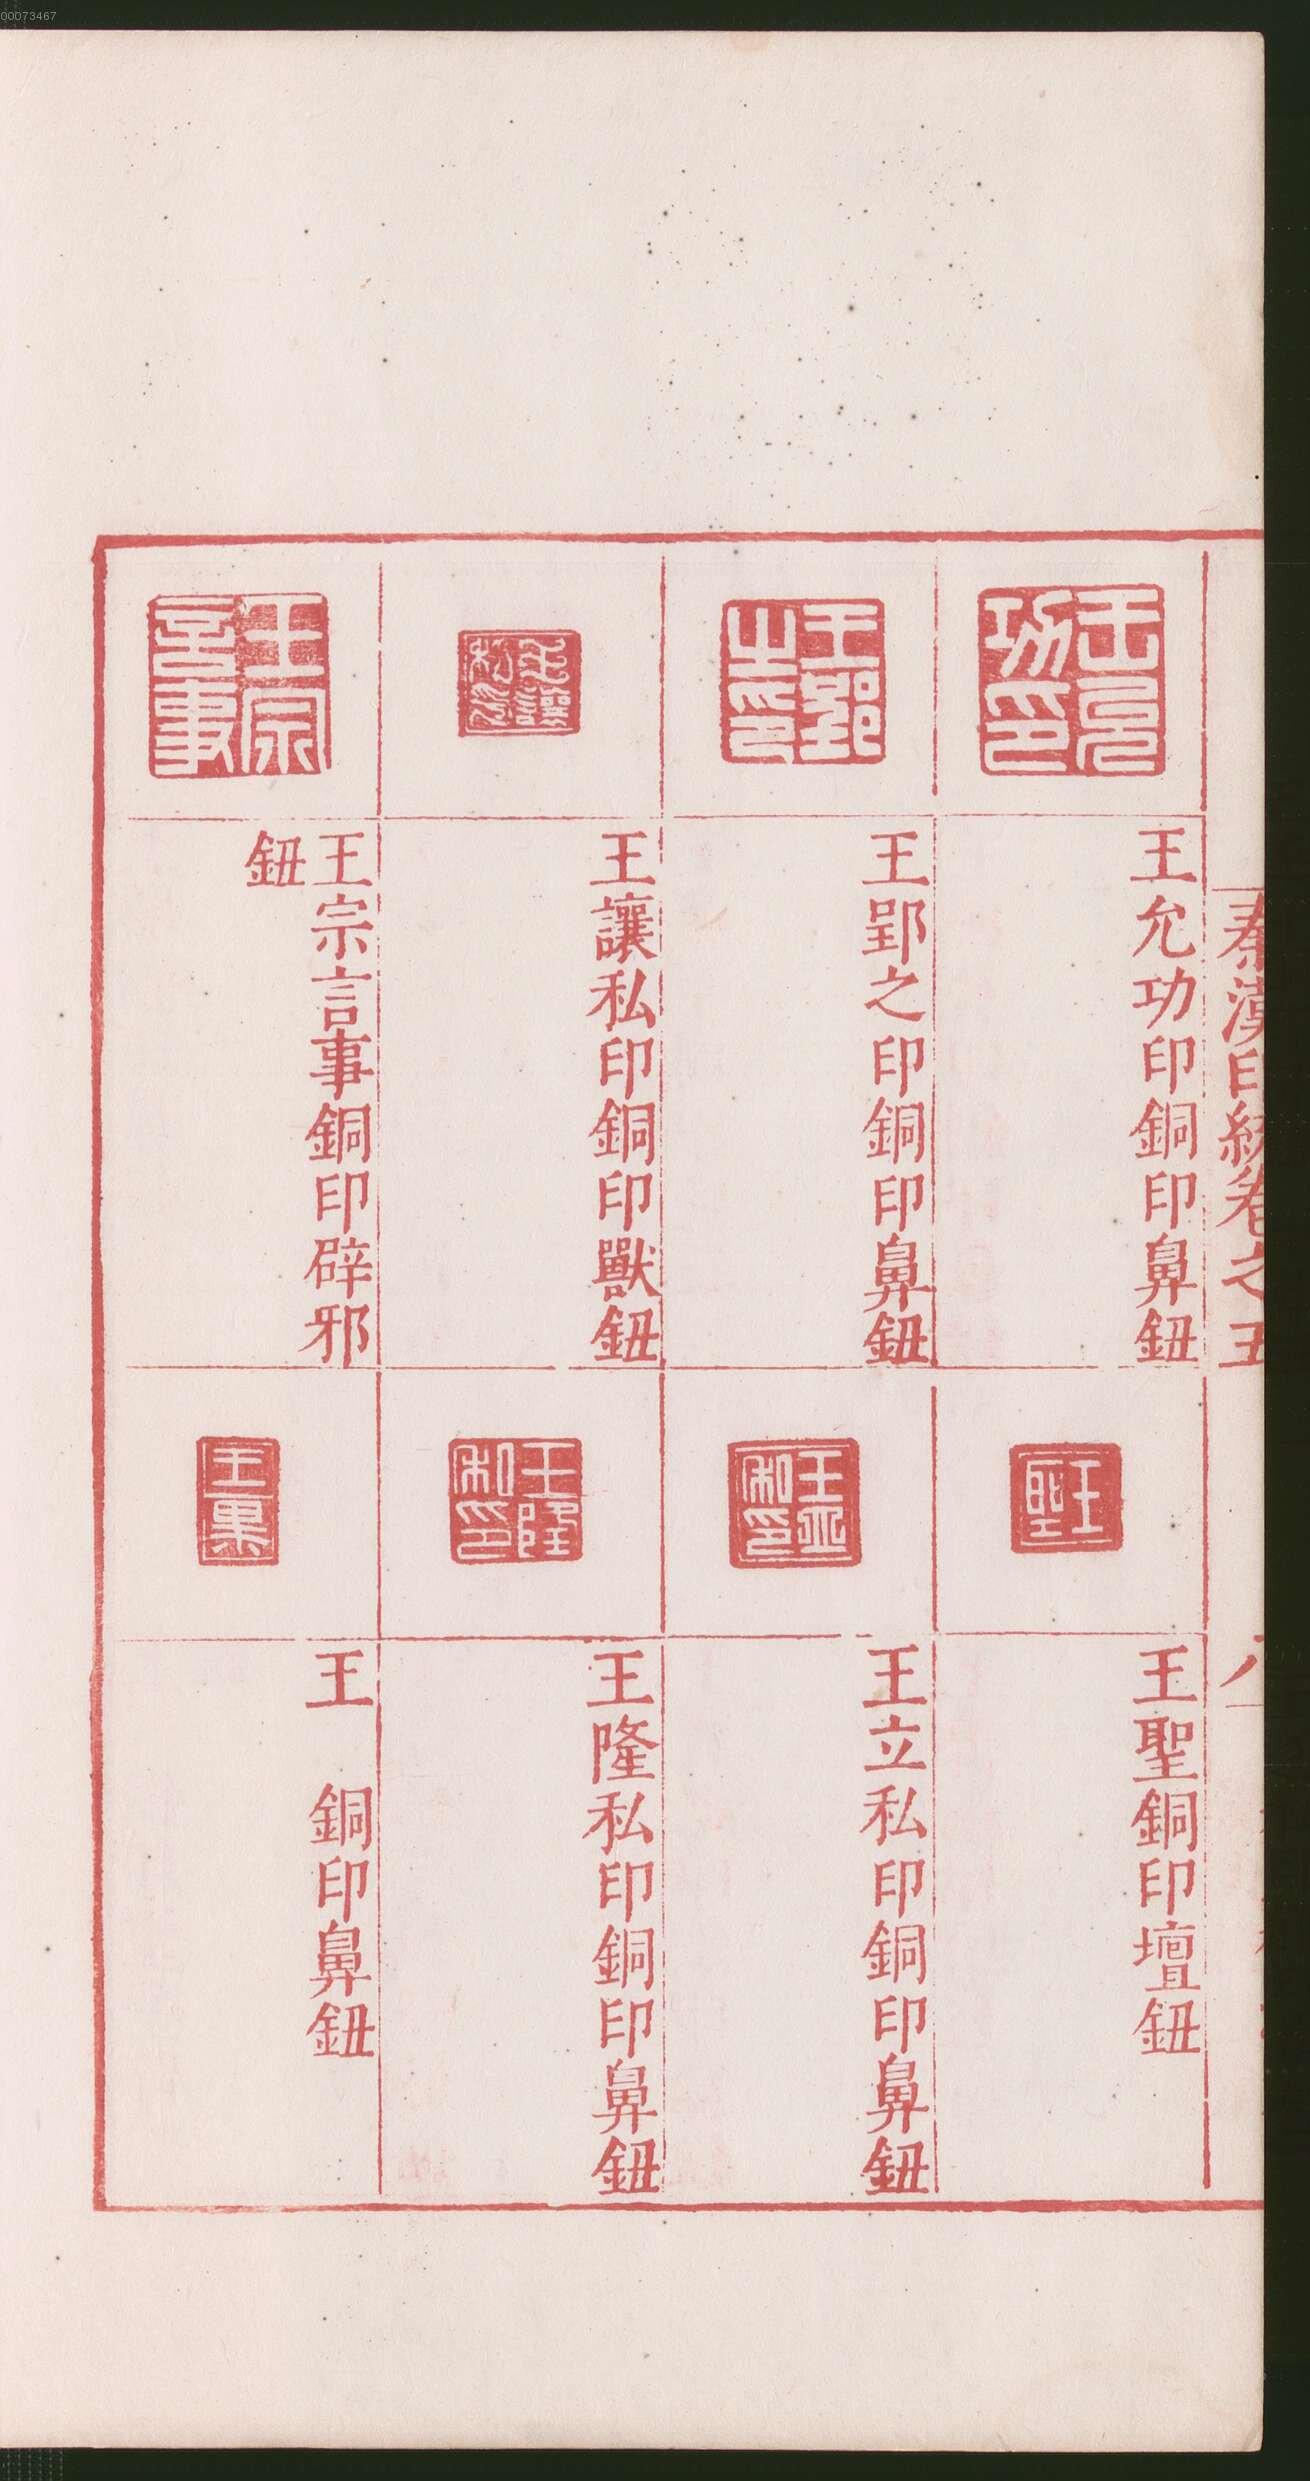 00073467
秦漢印統卷之五
八
王允功印
王允功印銅印鼻鈕
王郢之印
王郢之印銅印鼻鈕
王讓私印
王讓私印銅印獸鈕
王宗言事
王宗言事銅印辟邪
鈕
王聖
王聖銅印壇鈕
王立私印
王立私印銅印鼻鈕
王隆私印
王隆私印銅印鼻鈕
王
王 銅印鼻鈕